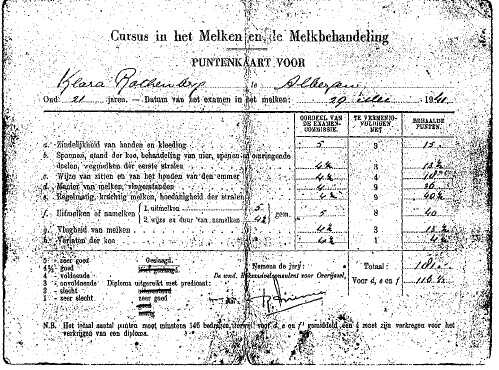 Cursus in het Melken en de Melkbehandeling
PUNTENKAART VOOR
Klara Rothenberg te
Oud 21 jaren. — Datum van het examen in het melken: 29 1941
OORDEEL VAN DE EXAMEN-COMMISSIE. TE VERMENIGVULDIGEN MET BEHAALDE PUNTEN.
a. Zindelijkheid van handen en kleeding 5 3 15
b. Spannen, stand der koe, behandeling van uier, spenen en omringende
deelen, wegmelken der eerste stralen 4½ 3 13½
c. Wijze van zitten en van het houden van den emmer 4½ 4
d. Manier van melken, vingerstanden 4 9 36
e. Regelmatig, krachtig melken, hoedanigheid der stralen 4½ 9 40½
f. Uitmelken of namelken { 1. uitmelken 5 } gem. 5 8 40
2. wijze en duur van namelken 4½
g. Vlugheid van melken 4½ 3 13½
h. Verlaten der koe 4½ 1 4½
5 = zeer goed Geslaagd.
4½ = goed
4 = voldoende
3 = onvoldoende Diploma uitgereikt met predicaat:
2 = slecht
1 = zeer slecht zeer goed
goed
Namens de jury:
De wnd. Rijkszuivelconsulent voor Overijssel,
Totaal: 181
Voor d, e en f 116½
N.B. Het totaal aantal punten moet minstens 146 bedragen, terwijl voor d, e en f gemiddeld een 4 moet zijn verkregen voor het
verkrijgen van een diploma.